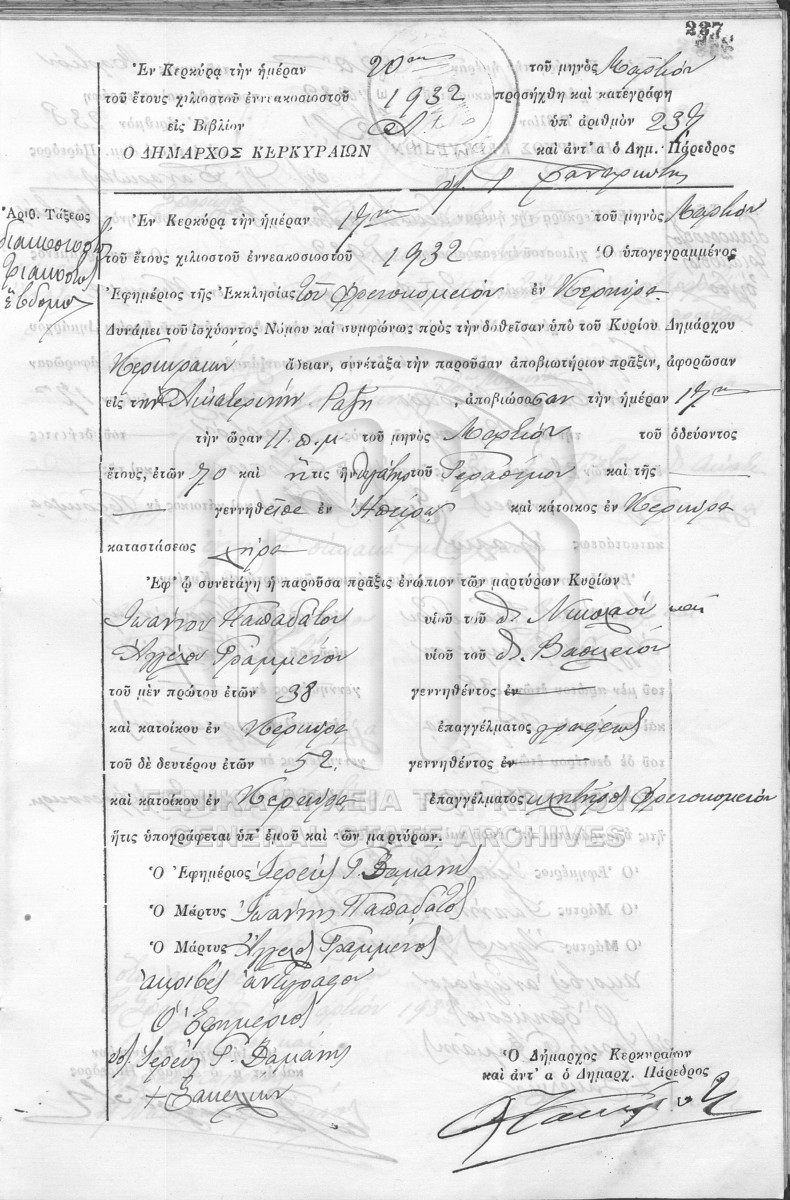 237
Ἐν Κερκύρᾳ τὴν ἡμέραν 20ην τοῦ μηνὸς Μαρτίου
τοῦ ἔτους χιλιοστοῦ ἐννεακοσιοστοῦ 1932 προσήχθη καὶ κατεγράφη
εἰς Βιβλίον Α1 ὑπ' ἀριθμὸν 237
Ο ΔΗΜΑΡΧΟΣ ΚΕΡΚΥΡΑΙΩΝ καὶ ἀντ' α ὁ Δημ. Πάρεδρος
Ἀριθ. Τάξεως
διακοσιοστὸς
τριακοστὸς
ἕβδομος
Ἐν Κερκύρᾳ τὴν ἡμέραν 17ην τοῦ μηνὸς Μαρτίου
τοῦ ἔτους χιλιοστοῦ ἐννεακοσιοστοῦ 1932 Ὁ ὑπογεγραμμένος
Ἐφημέριος τῆς Ἐκκλησίας τοῦ Φρενοκομείου ἐν Κερκύρᾳ
Δυνάμει τοῦ ἰσχύοντος Νόμου καὶ συμφώνως πρὸς τὴν δοθεῖσαν ὑπὸ τοῦ Κυρίου Δημάρχου
Κερκυραίων ἄδειαν, συνέταξα τὴν παροῦσαν ἀποβιωτήριον πρᾶξιν, ἀφορῶσαν
εἰς τὴν Αἰκατερίνην Ράπη, ἀποβιώσασαν τὴν ἡμέραν 17ην
τὴν ὥραν 11 π.μ τοῦ μηνὸς Μαρτίου τοῦ ὁδεύοντος
ἔτους, ἐτῶν 70 καὶ ἥτις ἦν θυγάτηρ τοῦ Γερασίμου καὶ τῆς
γεννηθεῖσα ἐν Ἠπείρῳ καὶ κάτοικος ἐν Κερκύρᾳ
καταστάσεως χήρα
Ἐφ' ᾧ συνετάγη ἡ παροῦσα πρᾶξις ἐνώπιον τῶν μαρτύρων Κυρίων
Ἰωάννου Παπαδάτου υἱοῦ τοῦ Νικολάου καὶ
Ἀγγέλου Γραμμένου υἱοῦ τοῦ Βασιλείου
τοῦ μὲν πρώτου ἐτῶν 38 γεννηθέντος ἐν
καὶ κατοίκου ἐν Κερκύρᾳ ἐπαγγέλματος γραφέως
τοῦ δὲ δευτέρου ἐτῶν 52 γεννηθέντος ἐν
καὶ κατοίκου ἐν Κερκύρᾳ ἐπαγγέλματος κλητῆρος Φρενοκομείου
ΓΕΝΙΚΑ ΑΡΧΕΙΑ ΤΟΥ ΚΡΑΤΟΥΣ
ἥτις ὑπογράφεται ὑπ' ἐμοῦ καὶ τῶν μαρτύρων.
GENERAL STATE ARCHIVES
Ὁ Ἐφημέριος Ἱερεὺς Γ. Δαμάνης
Ὁ Μάρτυς Ἰωάννης Παπαδᾶτος
Ὁ Μάρτυς Ἄγγελος Γραμμένος
ἀκριβὲς ἀντίγραφον
Ὁ Ἐφημέριος
Ἱερεὺς Γ. Δαμάνης
Ὁ Δήμαρχος Κερκυραίων
καὶ ἀντ' α ὁ Δημαρχ. Πάρεδρος